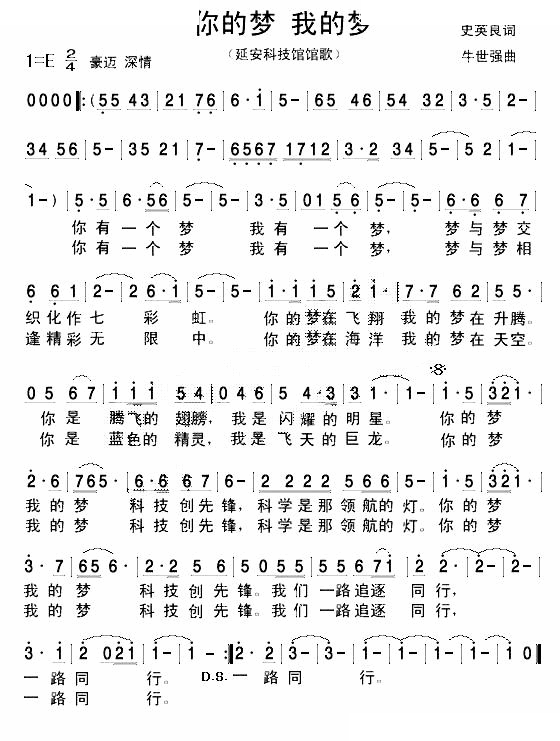 你的梦 我的梦
史英良词
1=E 2/4 豪迈 深情
(延安科技馆馆歌)
牛世强曲
0000‖:(55 43 | 21 76 | 6·i | 5- | 65 46 | 54 32 | 3·5 | 2- |
34 56 | 5- | 35 21 | 7- | 6567 1712 | 3·2 34 | 5- | 5- | 6- | 2- |
1-) | 5·5 | 6·56 | 5- | 5- | 3·5 | 015 56 | 5- | 5- | 6·6 | 6 7 |
你有一个梦 我有一个梦, 梦与梦交
你有一个梦 我有一个梦, 梦与梦相
6 61 | 2- | 2 6·i | 5- | 5-
织化作七彩虹。 你的梦在飞翔 我的梦在升腾。
逢精彩无限中。 你的梦在海洋 我的梦在天空。
05 67 | 111 54 | 046 5 4·3 | 3 2 | 1- | 1- | 1·5 | 321 |
你是腾飞的翅膀, 我是闪耀的明星。 你的梦
你是蓝色的精灵, 我是飞天的巨龙。 你的梦
2·6 | 765 | 6·6 67 | 6·5 | 2 222 2 56 | 5- | 5·5 | 321 |
我的梦 科技创先锋, 科学是那领航的灯。你的梦
我的梦 科技创先锋, 科学是那领航的灯。你的梦
3·7 | 656 | 2·2 23 | 2·5 | 5055 | 55 671 | 2 2 | 2- | 2- |
我的梦 科技创先锋。我们一路追逐同行,
我的梦 科技创先锋。我们一路追逐同行,
3·1 | 2 021 | 1- | 1- :‖ 2·2 | 3-3- | 1-1- | 1-10‖
一路同行。 D.S. 一路同行。
一路同行。